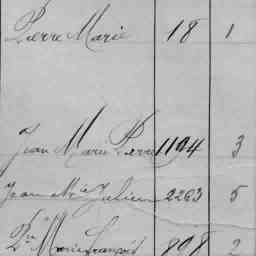 Pierre Marie 18 1
Jean Marie Pierre 1194 3
Jean Mie Julien 2263 5
Marie François 898 2